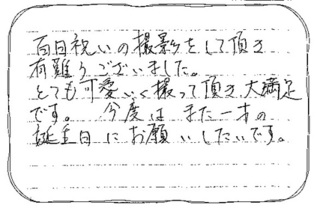 百日祝いの撮影をして頂き
有難うございました。
とても可愛いく撮って頂き、大満足
です。 今度は また一才の
誕生日にお願いしたいです。